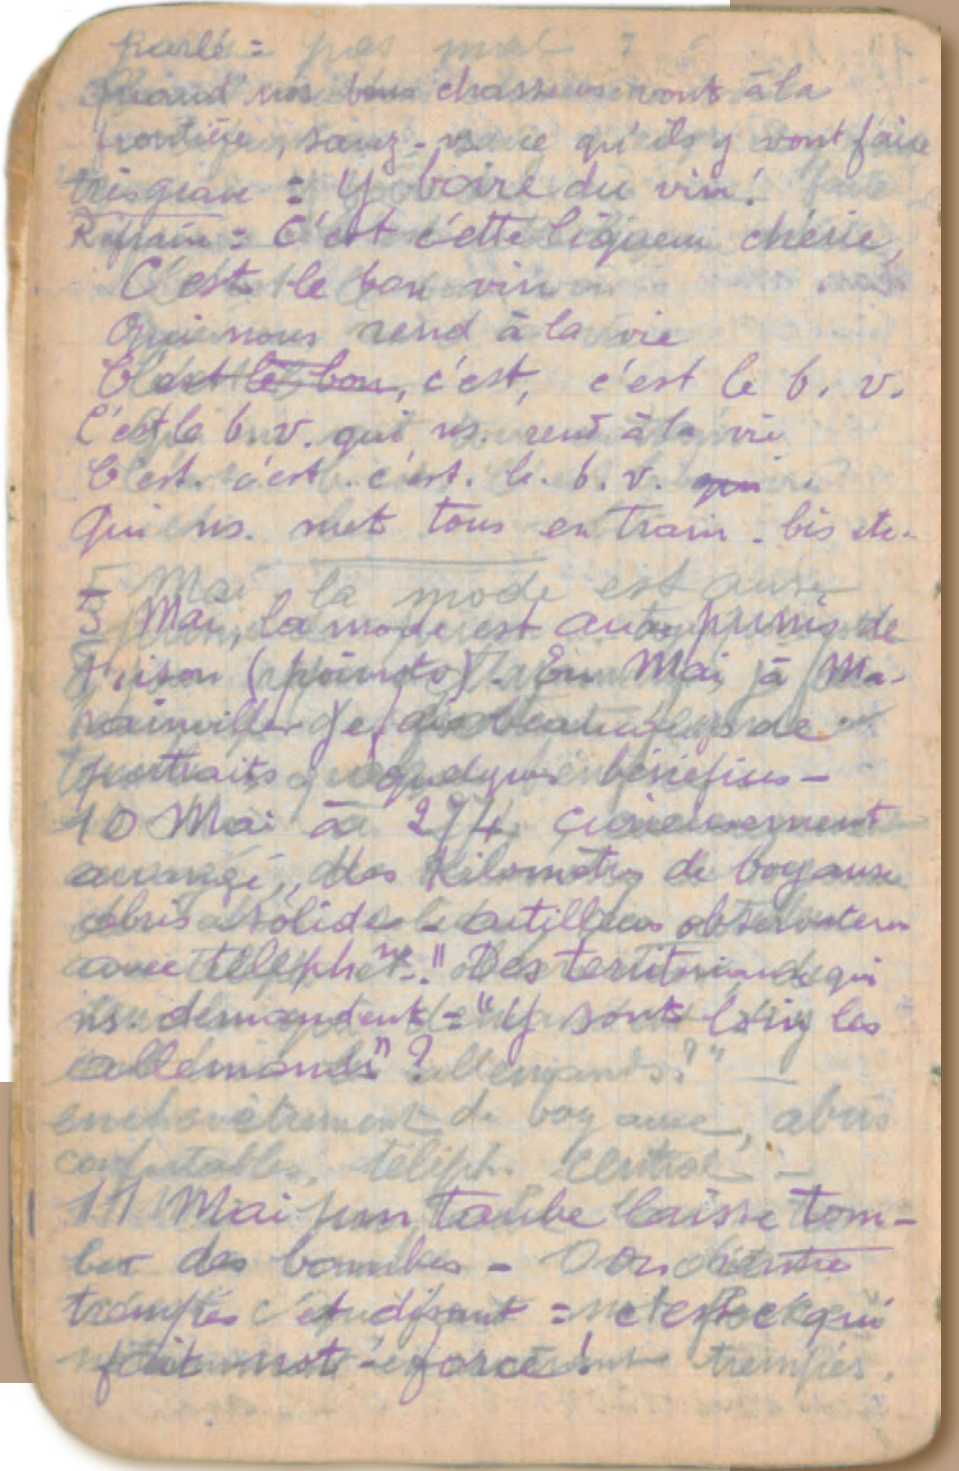 parlé = pas mal :
Quand nos bons chasseurs vont à la
frontière, savez-vs ce qu'ils y vont faire
très grave = Y boire du vin!
Refrain = C'est c'ette liqueur chérie,
C'est le bon vin
Qui nous rend à la vie
C'est le bon, c'est, c'est le b. v.
C'est le b. v. qui ns. rend à la vie
C'est. c'est. c'est. le. b. v. qui
Qui ns. met tous en train. bis etc.
5 Mai la mode est aux
5 Mai, la mode est aux punis de
Prison (rpointo). En Mai, à Ma-
rainviller je fais beaucoup de
portraits quelques bénéfices -
10 Mai à 274, curieusement
arrangé, des Kilomètres de boyaux
abris solides - artilleurs observateurs
avec téléphne." Des territoriaux qui
ns. demandent = "Y sont loin les
allemands"? allemands?"
enchevêtrement de boyaux, abris
confortables, téléph. central -
11 Mai un taube laisse tom-
ber des bombes - On rentre
trempés et disant = c'est ce qui
fait not' force! trempés.